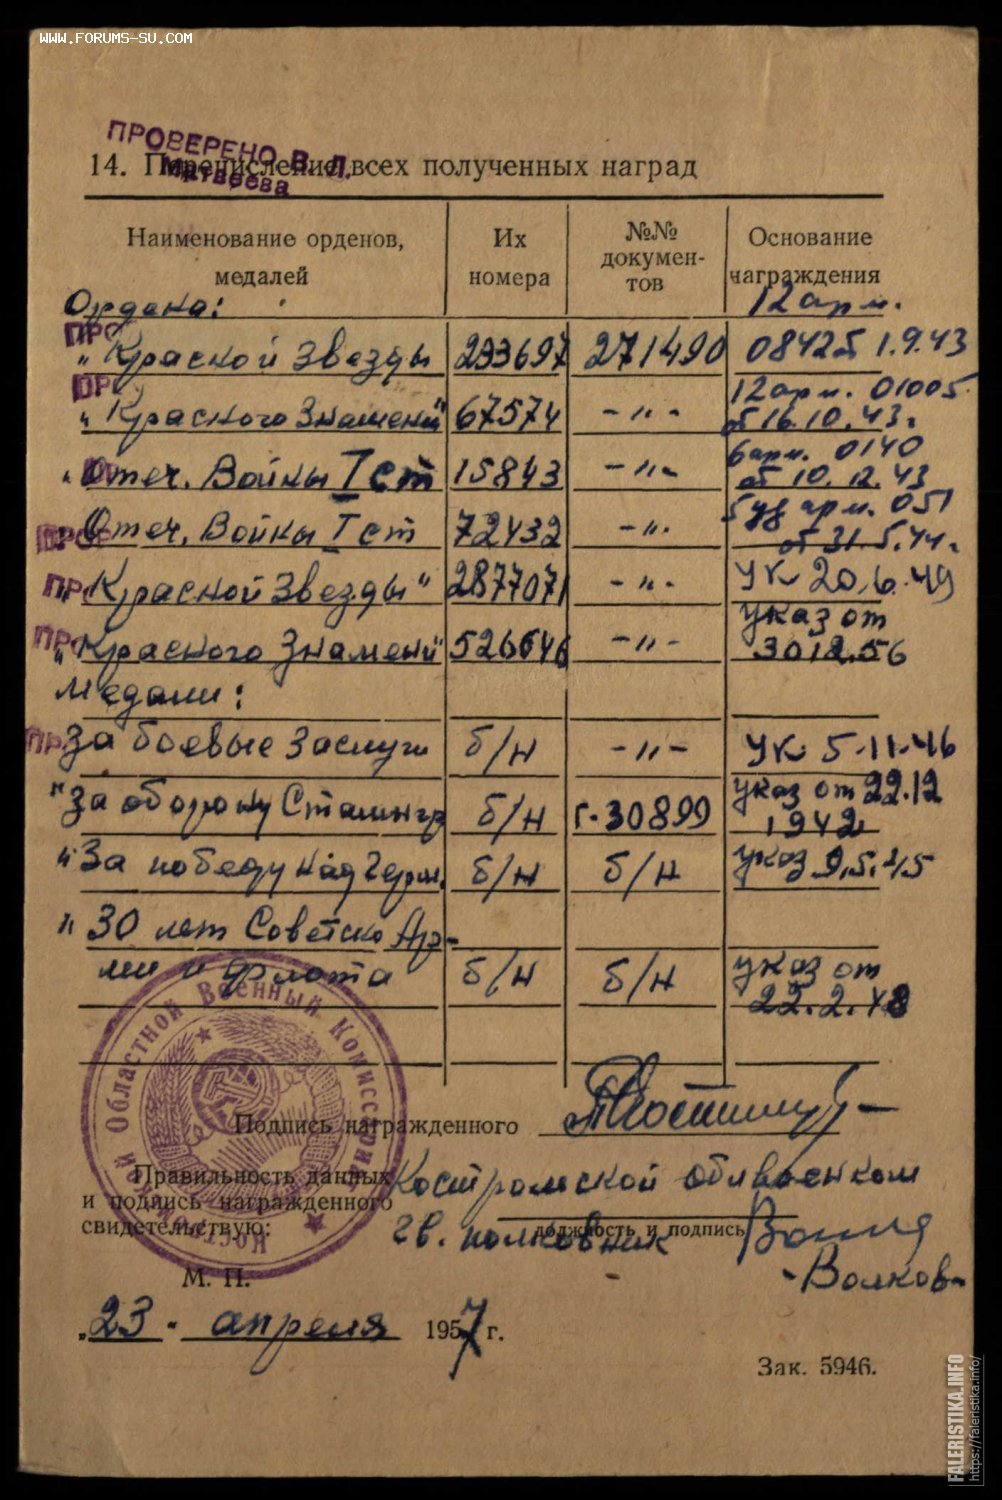 WWW.FORUMS-SU.COM
ПРОВЕРЕНО В. Л.
Матвеева
14. Перечисление всех полученных наград
Наименование орденов, медалей
Их номера
№№ докумен-тов
Основание награждения
Ордена:
12 арм.
ПРО
"Красной Звезды 233697 271490 0842 от 1.9.43
ПР
12 арм. 01005
"Красного Знамени" 67574 -"- от 16.10.43 г
6 арм. 0140
"Отеч. Войны I ст 15843 -"- от 10.12.43
5 уд арм. 051
ПРОВ
Отеч. Войны I ст 72432 -"- от 31.5.44 г
ПРО
"Красной Звезды" 2877071 -"- УК 20.6.49
ПРО
указ от
"Красного Знамени" 526646 -"- 30 12.56
Медали:
ПР
За боевые заслуги б/н -"- УК 5.11.46
указ от 22.12
"За оборону Сталингр б/н г-30899 1942
"За победу над Герм. б/н б/н указ 9.5.45
" 30 лет Советско Ар-
мии и флота б/н б/н указ от
22.2.48
Костромской Областной Военный Комиссариат
Подпись награжденного
Правильность данных
и подпись награжденного
свидетельствую:
Костромской облвоенком
должность и подпись
гв. полковник
-Волков-
М. П.
"23" апреля 1957 г.
Зак. 5946.
FALERISTIKA.INFO
https://faleristika.info/